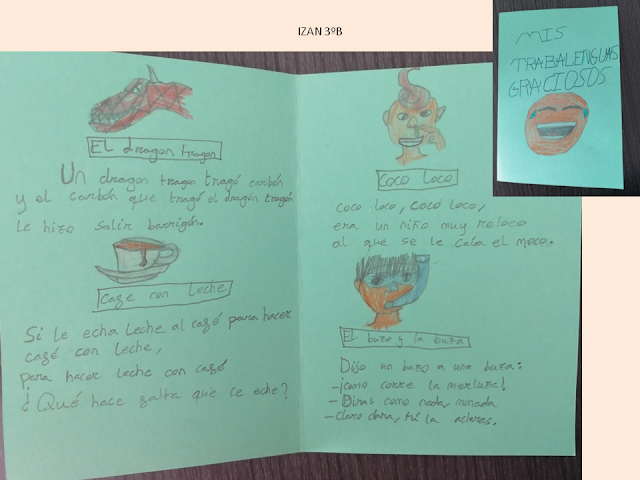 IZAN 3ºB
MIS
TRABALENGUAS
GRACIOSOS
El dragon tragon
Un dragon tragon tragó carbón
y el carbón que tragó el dragón tragón
le hizo salir barrigón.
Cafe con leche
Si le echa leche al café para hacer
café con leche,
para hacer leche con café
¿Qué hace falta que le eche?
Coco loco
Coco loco, coco loco,
era un niño muy reloco
al que se le caía el moco.
El buzo y la buza
Dijo un buzo a una buza:
-¡como corre la merluza!
- Diras como nada, monada
- Claro clara, tú la aclaras.